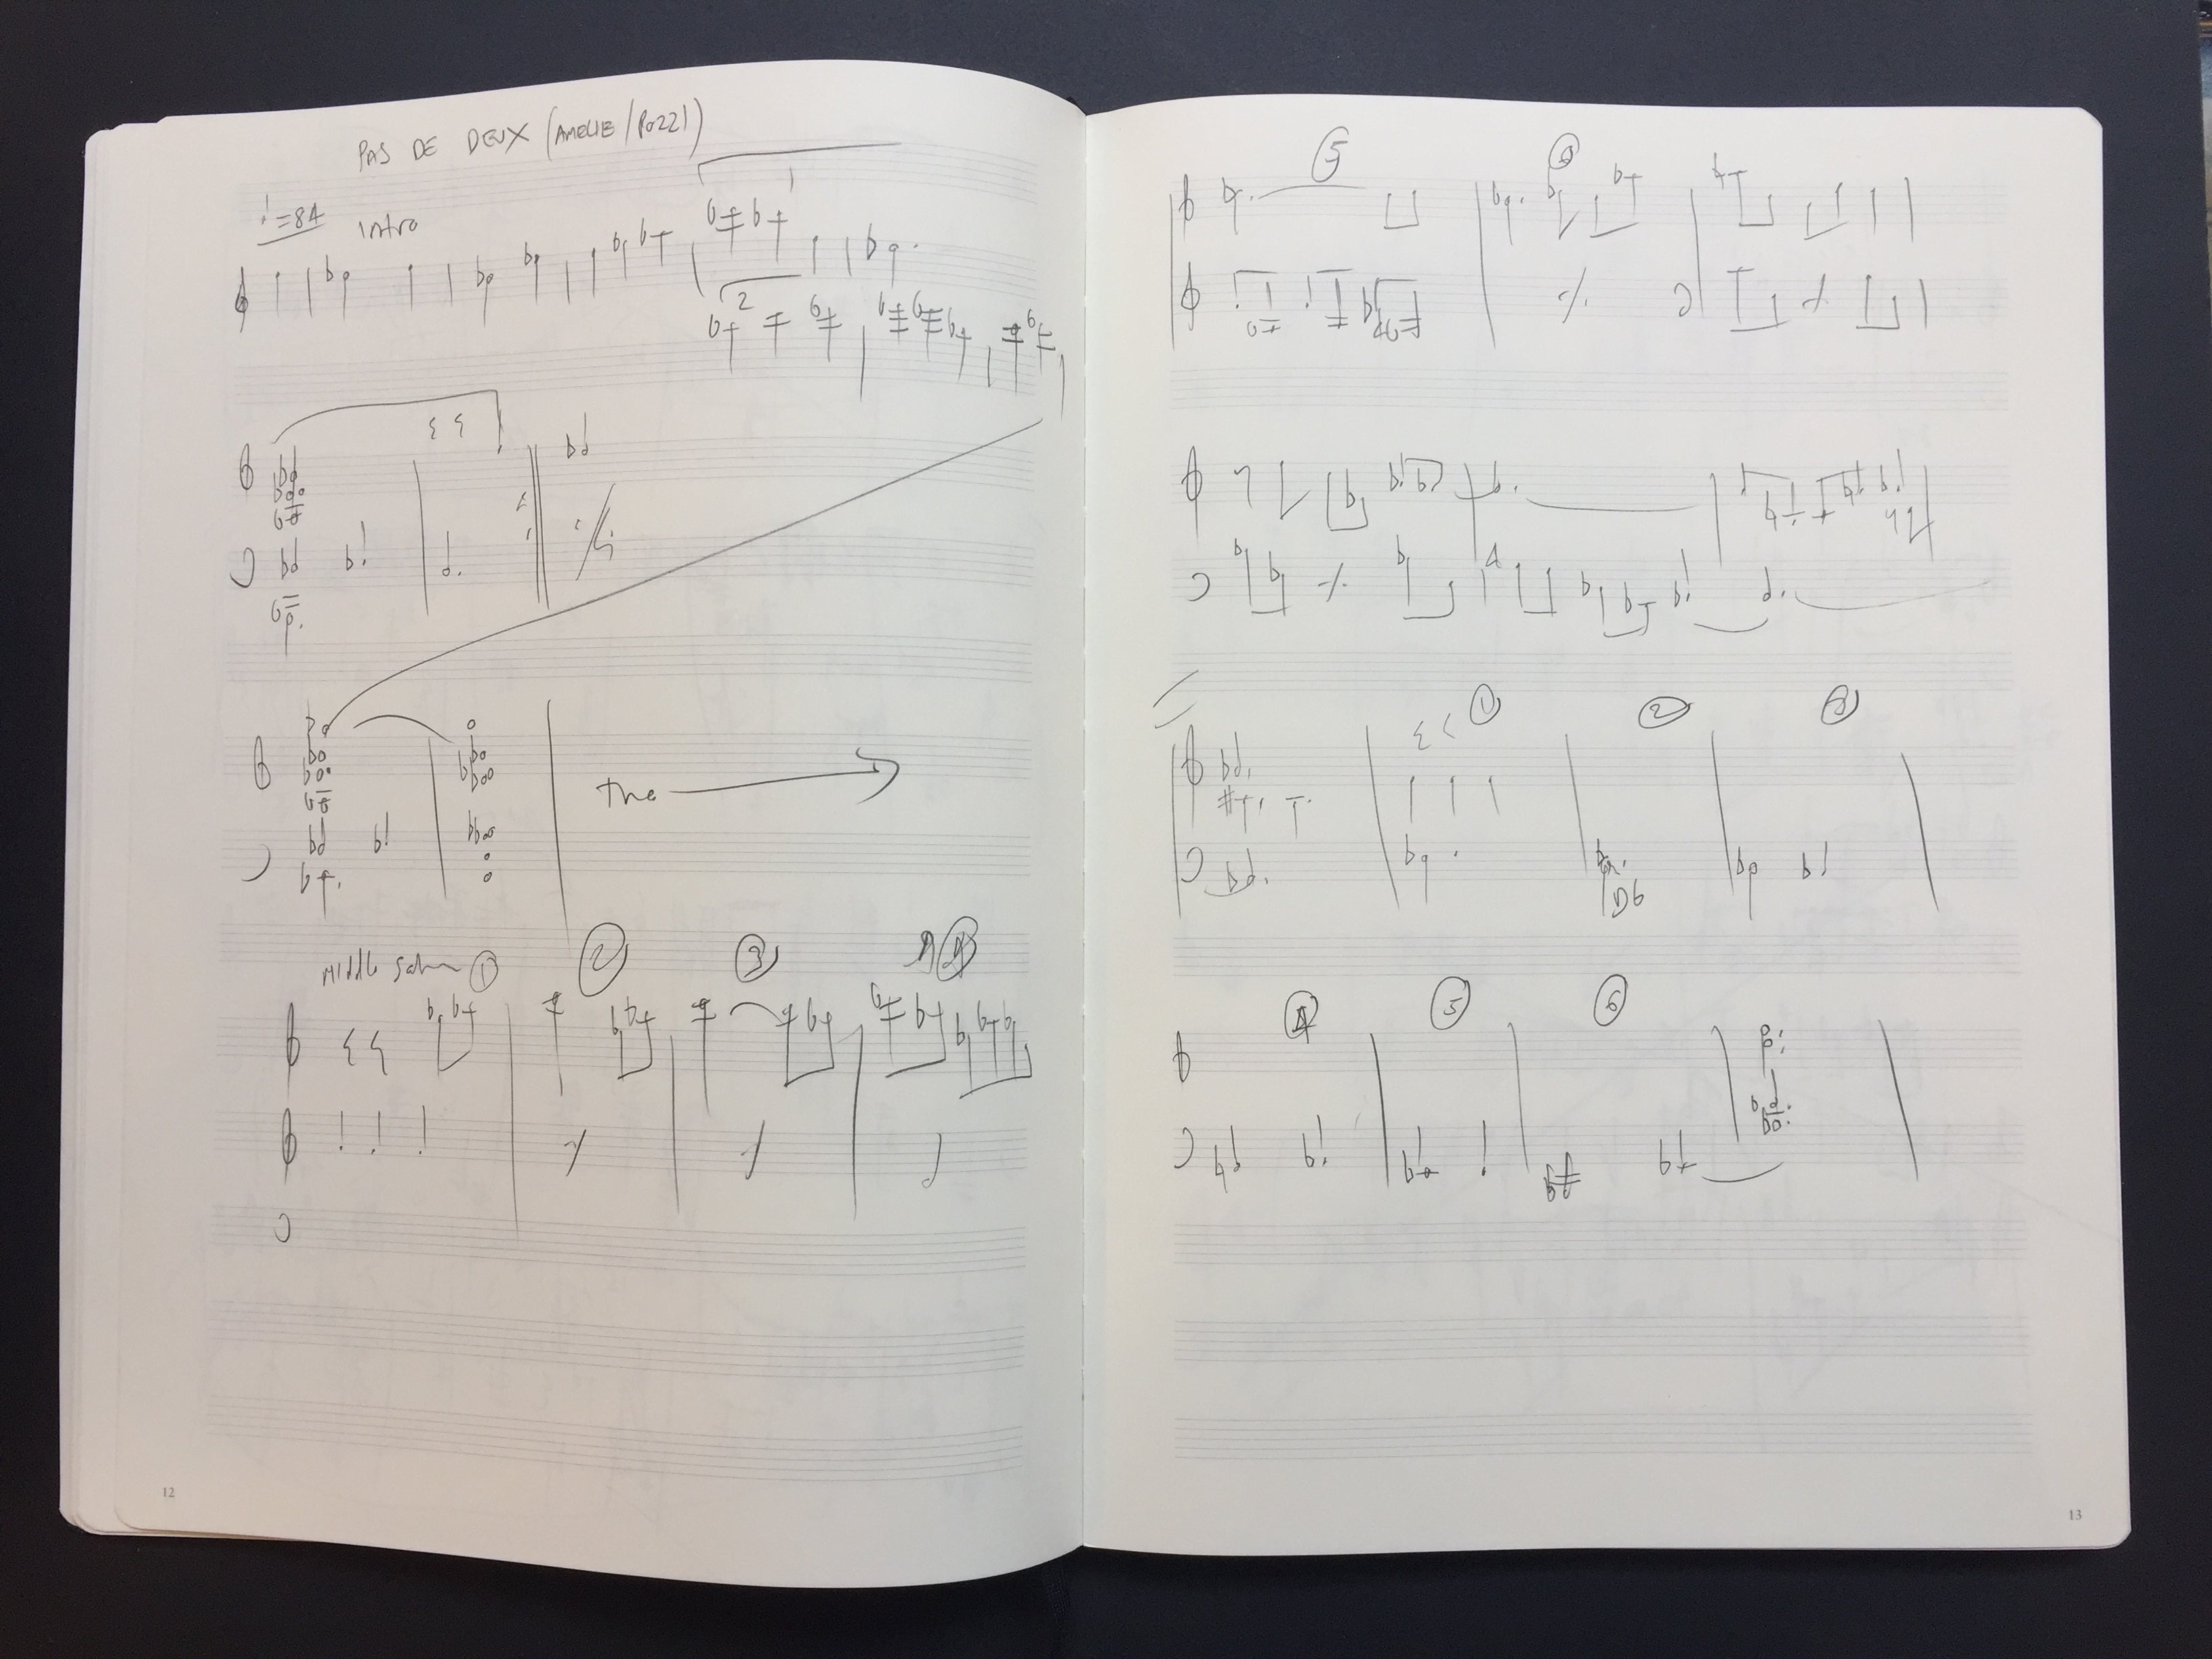 PAS DE DEUX (AMELIE/POZZI)
♩=84 Intro
2
The
Middle ① ② ③ ④
12
⑤ ⑥
① ② ③
Db
④ ⑤ ⑥
13